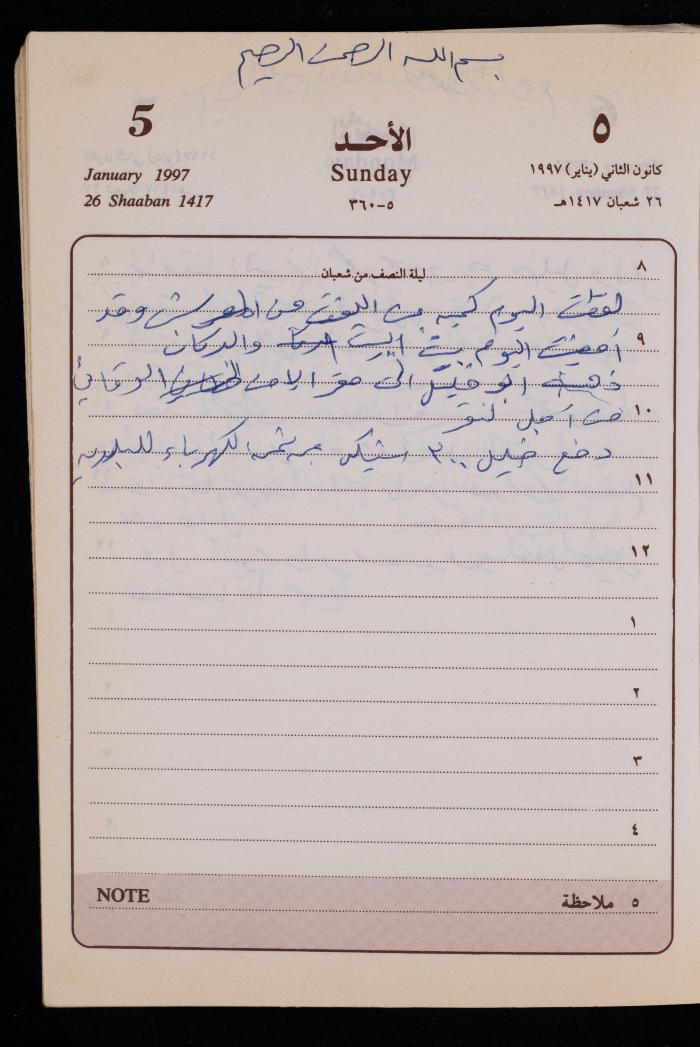 بسم الله الرحمن الرحيم
5
الأحد
٥
January 1997
Sunday
كانون الثاني (يناير) ١٩٩٧
26 Shaaban 1417
٣٦٠-٥
٢٦ شعبان ١٤١٧هـ
٨
ليلة النصف من شعبان
اليوم كمية من من وقد
٩
اليوم بيت البيت والدكان
ذهب ابو خليل الى مقر الامن الوقائي
١٠
من أجل
دفع خليل ٣٠٠ شيكل من ثمن الكهرباء للبلدية
١١
١٢
١
٢
٣
٤
NOTE
٥ ملاحظة